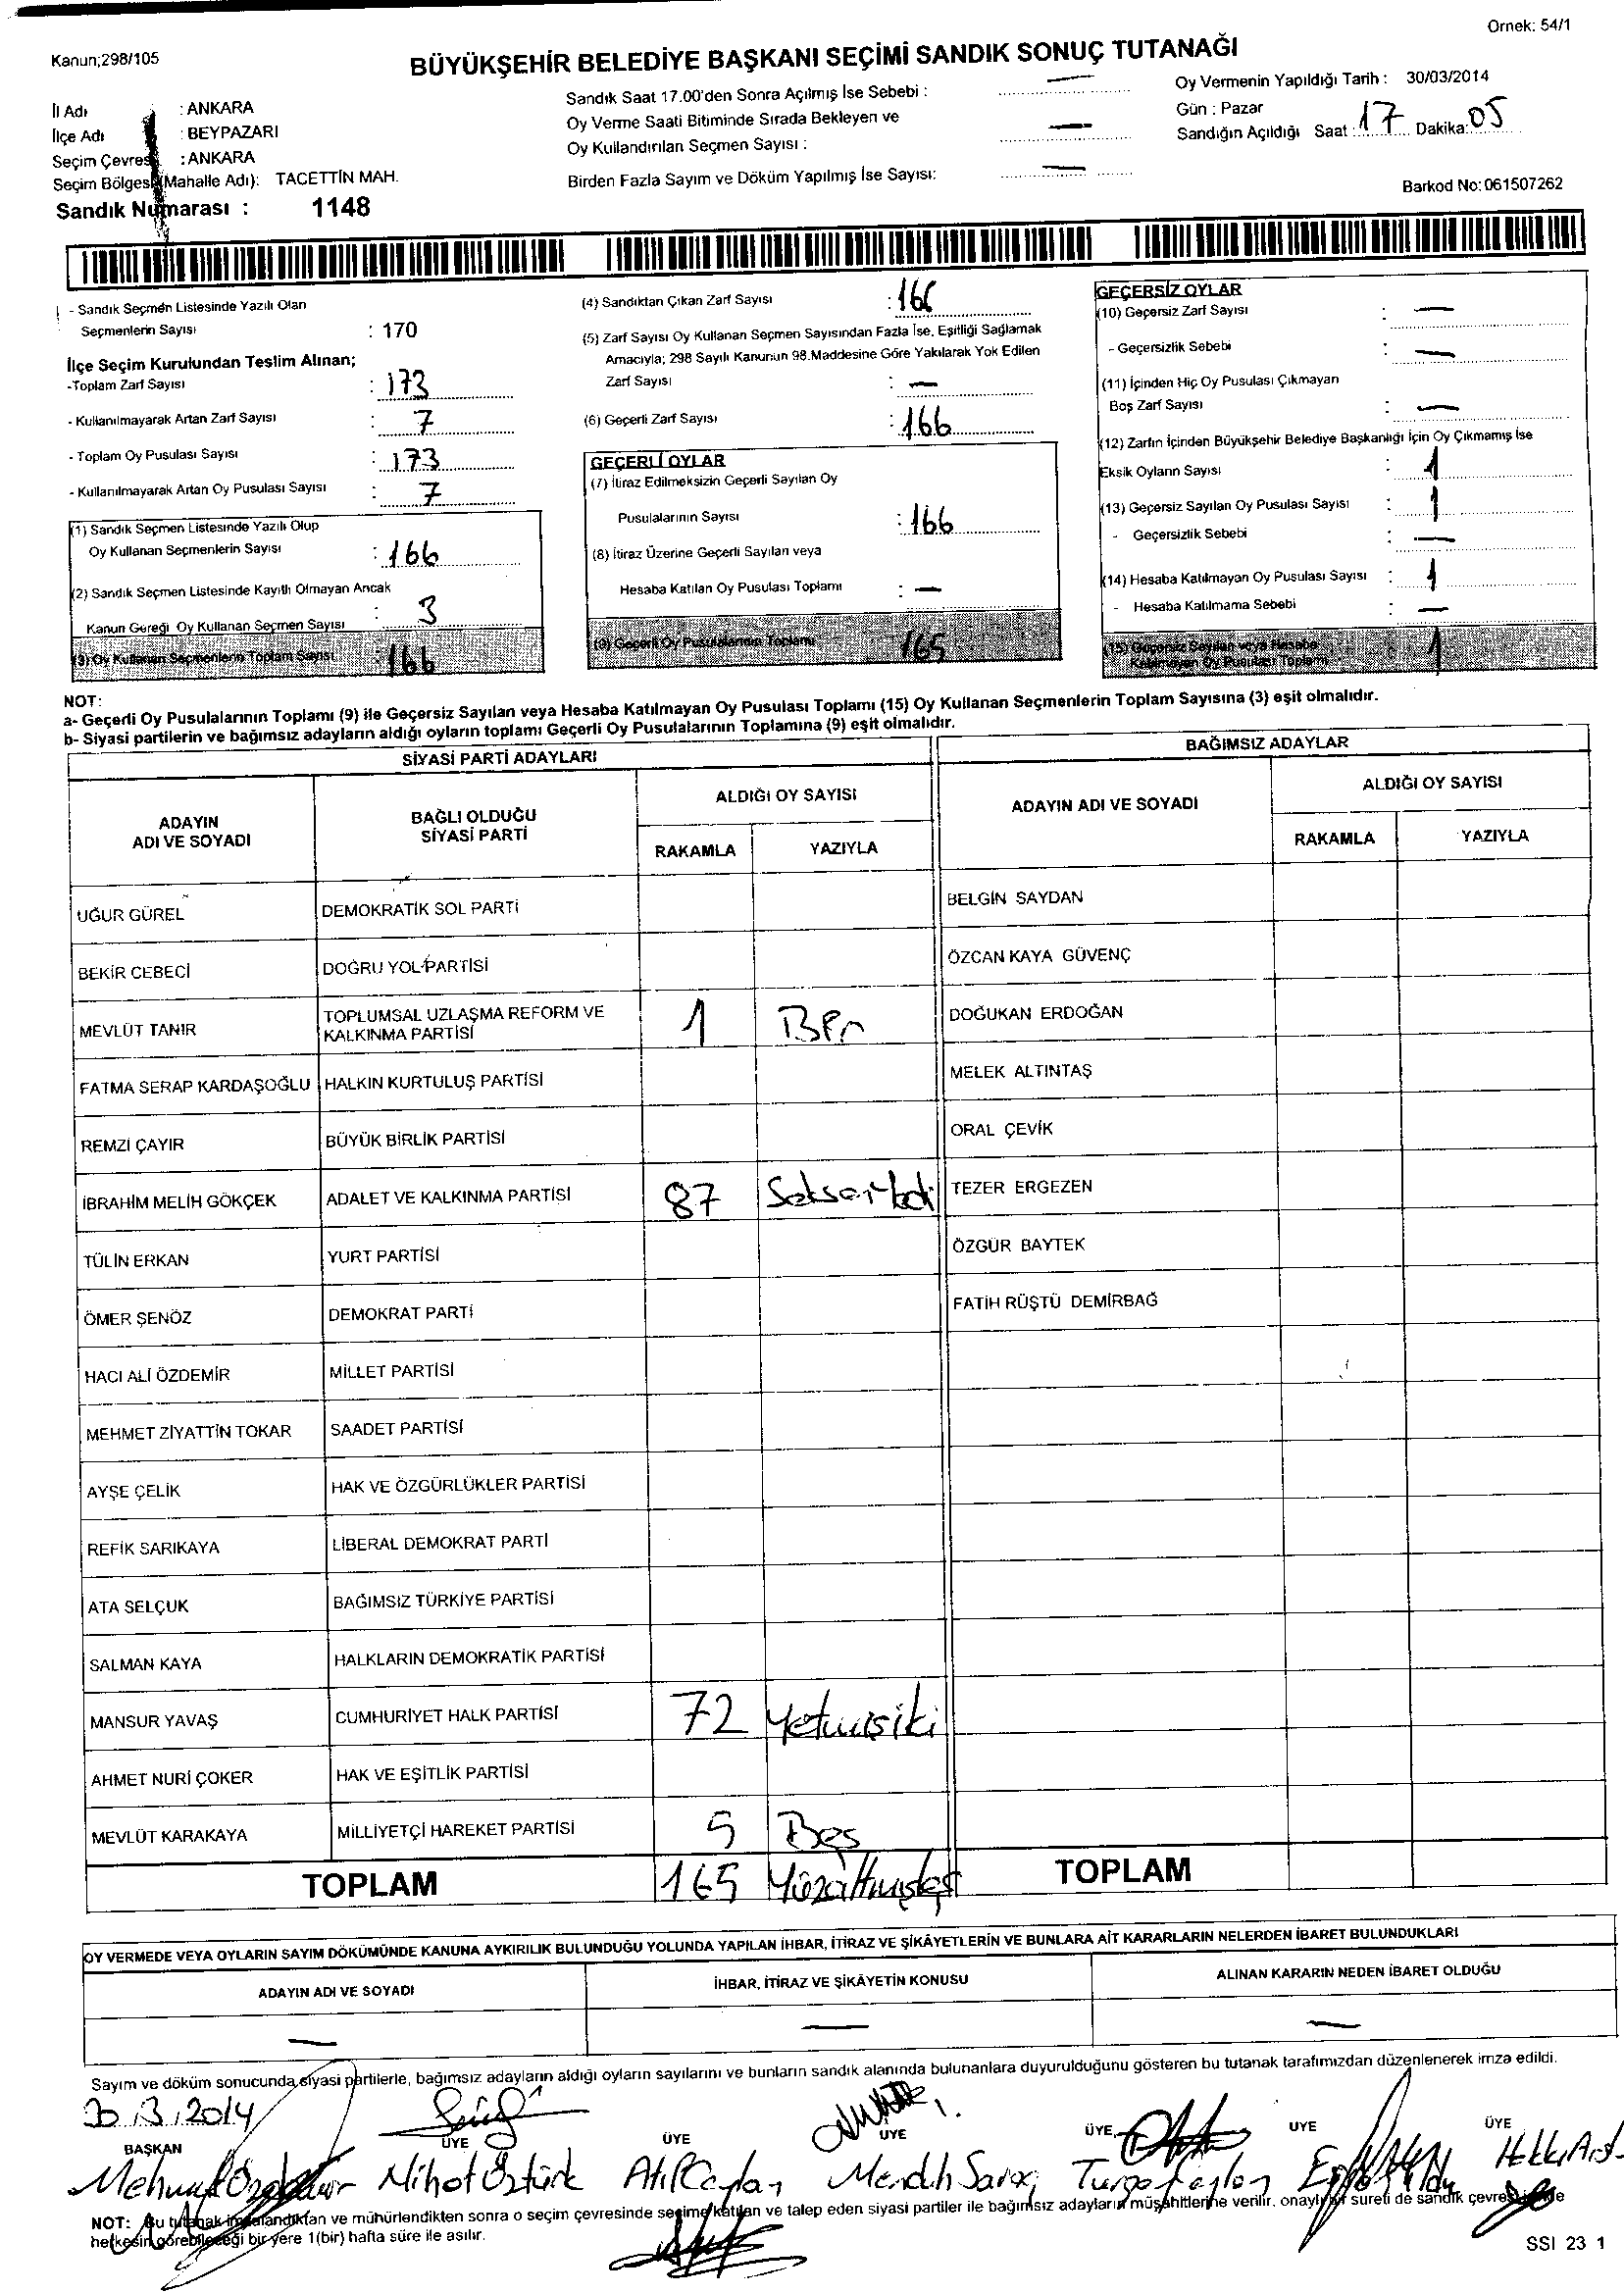 Ornek: 54/1
Kanun;298/105
BÜYÜKŞEHİR BELEDİYE BAŞKANI SEÇİMİ SANDIK SONUÇ TUTANAĞI
İl Adı : ANKARA
İlçe Adı : BEYPAZARI
Seçim Çevresi : ANKARA
Seçim Bölgesi (Mahalle Adı): TACETTİN MAH.
Sandık Numarası : 1148
Sandık Saat 17.00'den Sonra Açılmış İse Sebebi : —
Oy Verme Saati Bitiminde Sırada Bekleyen ve
Oy Kullandırılan Seçmen Sayısı : —
Birden Fazla Sayım ve Döküm Yapılmış İse Sayısı: —
Oy Vermenin Yapıldığı Tarih : 30/03/2014
Gün : Pazar
Sandığın Açıldığı Saat : 17 Dakika: 05
Barkod No: 061507262
- Sandık Seçmen Listesinde Yazılı Olan
Seçmenlerin Sayısı : 170
İlçe Seçim Kurulundan Teslim Alınan;
-Toplam Zarf Sayısı : 173
- Kullanılmayarak Artan Zarf Sayısı : 7
- Toplam Oy Pusulası Sayısı : 173
- Kullanılmayarak Artan Oy Pusulası Sayısı : 7
(1) Sandık Seçmen Listesinde Yazılı Olup
Oy Kullanan Seçmenlerin Sayısı : 166
(2) Sandık Seçmen Listesinde Kayıtlı Olmayan Ancak
Kanun Gereği Oy Kullanan Seçmen Sayısı : 3
(3) Oy Kullanan Seçmenlerin Toplam Sayısı : 166
(4) Sandıktan Çıkan Zarf Sayısı : 166
(5) Zarf Sayısı Oy Kullanan Seçmen Sayısından Fazla İse, Eşitliği Sağlamak
Amacıyla; 298 Sayılı Kanunun 98.Maddesine Göre Yakılarak Yok Edilen
Zarf Sayısı : —
(6) Geçerli Zarf Sayısı : 166
GEÇERLİ OYLAR
(7) İtiraz Edilmeksizin Geçerli Sayılan Oy
Pusulalarının Sayısı : 166
(8) İtiraz Üzerine Geçerli Sayılan veya
Hesaba Katılan Oy Pusulası Toplamı : —
(9) Geçerli Oy Pusulalarının Toplamı 165
GEÇERSİZ OYLAR
(10) Geçersiz Zarf Sayısı : —
- Geçersizlik Sebebi : —
(11) İçinden Hiç Oy Pusulası Çıkmayan
Boş Zarf Sayısı : —
(12) Zarfın İçinden Büyükşehir Belediye Başkanlığı İçin Oy Çıkmamış İse
Eksik Oyların Sayısı : 1
(13) Geçersiz Sayılan Oy Pusulası Sayısı : 1
- Geçersizlik Sebebi : —
(14) Hesaba Katılmayan Oy Pusulası Sayısı : 1
- Hesaba Katılmama Sebebi : —
(15) Geçersiz Sayılan veya Hesaba
Katılmayan Oy Pusulası Toplamı 1
NOT:
a- Geçerli Oy Pusulalarının Toplamı (9) ile Geçersiz Sayılan veya Hesaba Katılmayan Oy Pusulası Toplamı (15) Oy Kullanan Seçmenlerin Toplam Sayısına (3) eşit olmalıdır.
b- Siyasi partilerin ve bağımsız adayların aldığı oyların toplamı Geçerli Oy Pusulalarının Toplamına (9) eşit olmalıdır.
SİYASİ PARTİ ADAYLARI BAĞIMSIZ ADAYLAR
ADAYIN ADI VE SOYADI BAĞLI OLDUĞU SİYASİ PARTİ ALDIĞI OY SAYISI ADAYIN ADI VE SOYADI ALDIĞI OY SAYISI
RAKAMLA YAZIYLA RAKAMLA YAZIYLA
UĞUR GÜREL DEMOKRATİK SOL PARTİ BELGİN SAYDAN
BEKİR CEBECİ DOĞRU YOL PARTİSİ ÖZCAN KAYA GÜVENÇ
MEVLÜT TANIR TOPLUMSAL UZLAŞMA REFORM VE KALKINMA PARTİSİ 1 Bir DOĞUKAN ERDOĞAN
FATMA SERAP KARDAŞOĞLU HALKIN KURTULUŞ PARTİSİ MELEK ALTINTAŞ
REMZİ ÇAYIR BÜYÜK BİRLİK PARTİSİ ORAL ÇEVİK
İBRAHİM MELİH GÖKÇEK ADALET VE KALKINMA PARTİSİ 87 Seksenyedi TEZER ERGEZEN
TÜLİN ERKAN YURT PARTİSİ ÖZGÜR BAYTEK
ÖMER ŞENÖZ DEMOKRAT PARTİ FATİH RÜŞTÜ DEMİRBAĞ
HACI ALİ ÖZDEMİR MİLLET PARTİSİ
MEHMET ZİYATTİN TOKAR SAADET PARTİSİ
AYŞE ÇELİK HAK VE ÖZGÜRLÜKLER PARTİSİ
REFİK SARIKAYA LİBERAL DEMOKRAT PARTİ
ATA SELÇUK BAĞIMSIZ TÜRKİYE PARTİSİ
SALMAN KAYA HALKLARIN DEMOKRATİK PARTİSİ
MANSUR YAVAŞ CUMHURİYET HALK PARTİSİ 72 Yetmişiki
AHMET NURİ ÇOKER HAK VE EŞİTLİK PARTİSİ
MEVLÜT KARAKAYA MİLLİYETÇİ HAREKET PARTİSİ 5 Beş
TOPLAM 165 Yüzaltmışbeş TOPLAM
OY VERMEDE VEYA OYLARIN SAYIM DÖKÜMÜNDE KANUNA AYKIRILIK BULUNDUĞU YOLUNDA YAPILAN İHBAR, İTİRAZ VE ŞİKÂYETLERİN VE BUNLARA AİT KARARLARIN NELERDEN İBARET BULUNDUKLARI
ADAYIN ADI VE SOYADI İHBAR, İTİRAZ VE ŞİKÂYETİN KONUSU ALINAN KARARIN NEDEN İBARET OLDUĞU
— — —
Sayım ve döküm sonucunda siyasi partilerle, bağımsız adayların aldığı oyların sayılarını ve bunların sandık alanında bulunanlara duyurulduğunu gösteren bu tutanak tarafımızdan düzenlenerek imza edildi.
30.3.2014
BAŞKAN ÜYE ÜYE ÜYE ÜYE UYE ÜYE
Nihat Öztürk Atıf Ceylan
NOT: Bu tutanak imzalandıktan ve mühürlendikten sonra o seçim çevresinde seçime katılan ve talep eden siyasi partiler ile bağımsız adayların müşahitlerine verilir, onaylı bir sureti de sandık çevresinde
herkesin görebileceği bir yere 1(bir) hafta süre ile asılır.
SSI 23 1